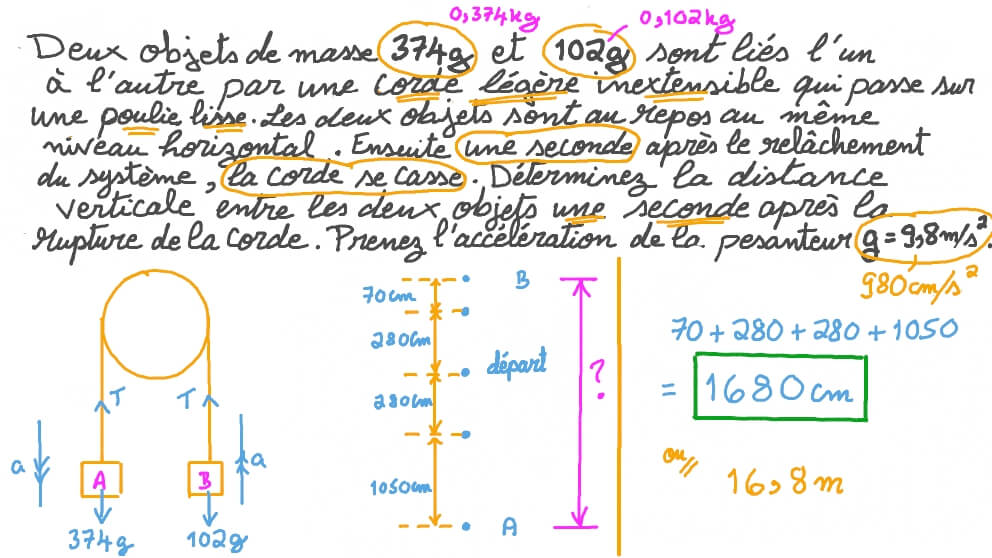 0,374kg 0,102kg
Deux objets de masse 374g et 102g sont liés l'un
à l'autre par une corde légère inextensible qui passe sur
une poulie lisse. Les deux objets sont au repos au même
niveau horizontal. Ensuite une seconde après le relâchement
du système, la corde se casse. Déterminez la distance
verticale entre les deux objets une seconde après la
rupture de la corde. Prenez l'accélération de la pesanteur g = 9,8m/s².
980cm/s²
T T
a A B a
374g 102g
B
70cm
280cm
départ
280cm
1050cm
A
?
70 + 280 + 280 + 1050
= 1680cm
ou
16,8m